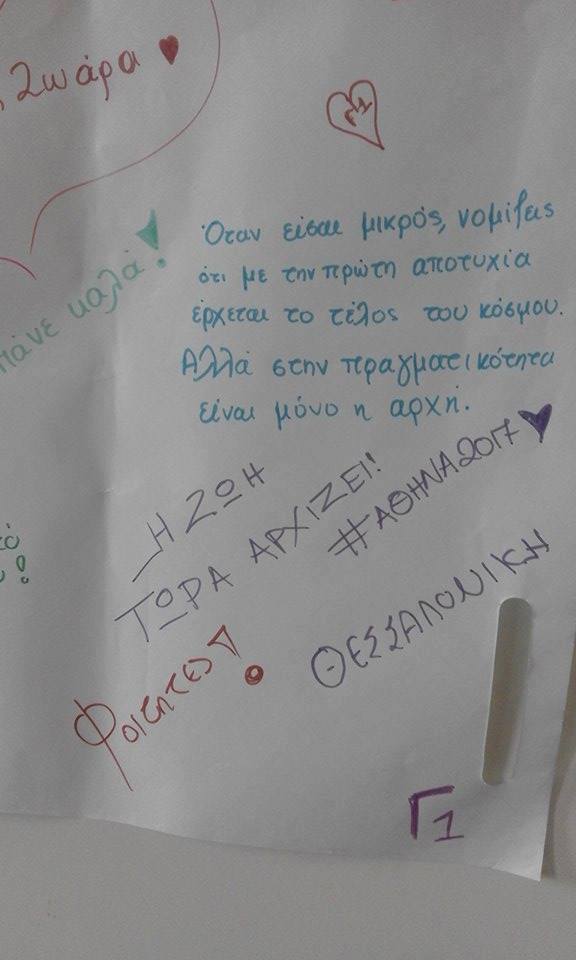 Ζωάρα
πάνε καλά!
Όταν είσαι μικρός, νομίζεις
ότι με την πρώτη αποτυχία
έρχεται το τέλος του κόσμου.
Αλλά στην πραγματικότητα
είναι μόνο η αρχή.
Η ΖΩΗ
ΤΩΡΑ ΑΡΧΙΖΕΙ!
#ΑΘΗΝΑ2017
ΦΟΙΤΗΤΕΣ!
ΘΕΣΣΑΛΟΝΙΚΗ
Γ1